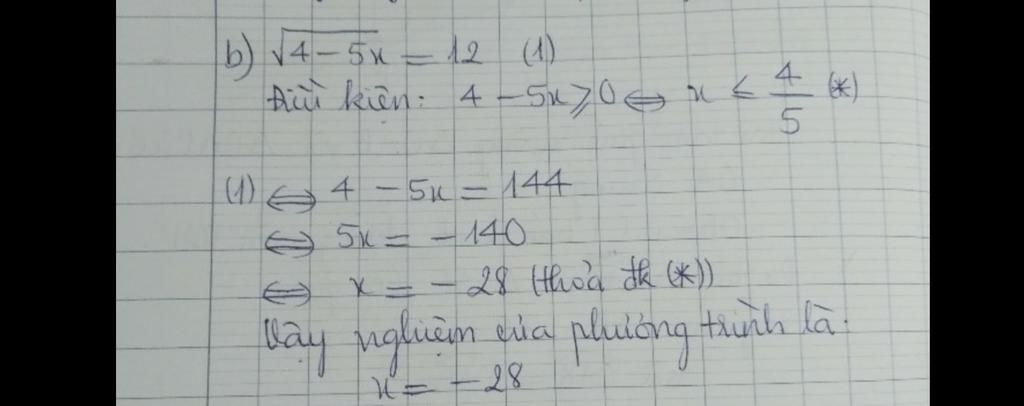 b) √4-5x = 12 (1)
Điều kiện: 4 - 5x ⩾ 0 ⇔ x ≤ 4/5 (*)
(1) ⇔ 4 - 5x = 144
⇔ 5x = - 140
⇔ x = - 28 (thỏa đk (*))
Vậy nghiệm của phương trình là:
x = - 28